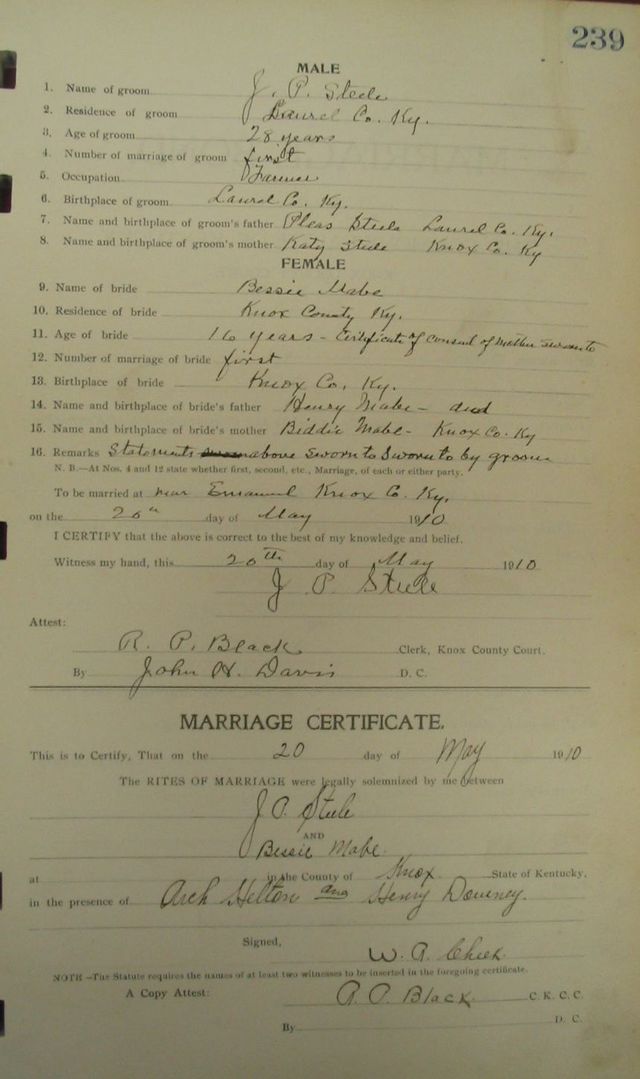 239
MALE
1. Name of groom J. P. Steele
2. Residence of groom Laurel Co. Ky.
3. Age of groom 28 years
4. Number of marriage of groom first
5. Occupation Farmer
6. Birthplace of groom Laurel Co. Ky.
7. Name and birthplace of groom's father Pleas Steele Laurel Co. Ky.
8. Name and birthplace of groom's mother Katy Steele Knox Co. Ky
FEMALE
9. Name of bride Bessie Mabe
10. Residence of bride Knox County Ky.
11. Age of bride 16 years - Certificate of consent of mother sworn to
12. Number of marriage of bride first
13. Birthplace of bride Knox Co. Ky.
14. Name and birthplace of bride's father Henry Mabe - dead
15. Name and birthplace of bride's mother Biddie Mabe - Knox Co. Ky
16. Remarks Statements above sworn to sworn to by groom
N. B.—At Nos. 4 and 12 state whether first, second, etc., Marriage, of each or either party.
To be married at near Emanuel Knox Co. Ky.
on the 20th day of May 1910
I CERTIFY that the above is correct to the best of my knowledge and belief.
Witness my hand, this 20th day of May 1910
J. P. Steele
Attest:
R. P. Black Clerk, Knox County Court.
By John H. Davis D. C.
MARRIAGE CERTIFICATE.
This is to Certify, That on the 20 day of May 1910
The RITES OF MARRIAGE were legally solemnized by me between
J. P. Steele
AND
Bessie Mabe
at in the County of Knox State of Kentucky,
in the presence of Arch Helton and Henry Downey.
Signed,
W. R. Cheek
NOTE—The Statute requires the names of at least two witnesses to be inserted in the foregoing certificate.
A Copy Attest: R. P. Black C. K. C. C.
By D. C.